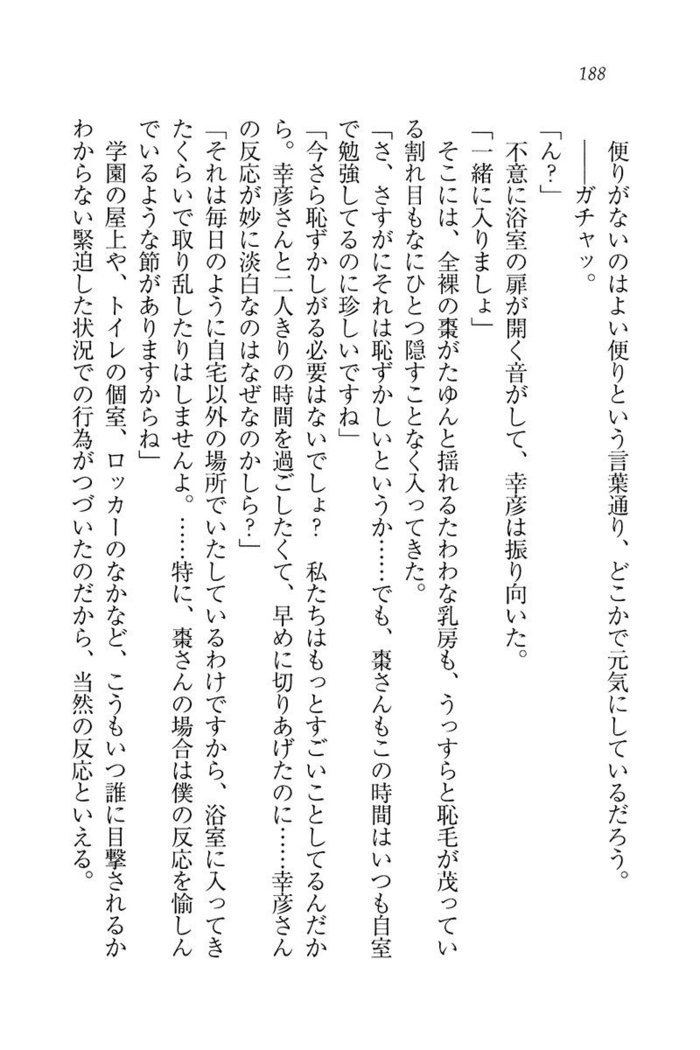 188
便りがないのはよい便りという言葉通り、どこかで元気にしているだろう。
――ガチャッ。
「ん？」
不意に浴室の扉が開く音がして、幸彦は振り向いた。
「一緒に入りましょ」
そこには、全裸の棗がたゆんと揺れるたわわな乳房も、うっすらと恥毛が茂ってい
る割れ目もなにひとつ隠すことなく入ってきた。
「さ、さすがにそれは恥ずかしいというか……でも、棗さんもこの時間はいつも自室
で勉強してるのに珍しいですね」
「今さら恥ずかしがる必要はないでしょ？　私たちはもっとすごいことしてるんだか
ら。幸彦さんと二人きりの時間を過ごしたくて、早めに切りあげたのに……幸彦さん
の反応が妙に淡白なのはなぜなのかしら？」
「それは毎日のように自宅以外の場所でいたしているわけですから、浴室に入ってき
たくらいで取り乱したりはしませんよ。……特に、棗さんの場合は僕の反応を愉しん
でいるような節がありますからね」
学園の屋上や、トイレの個室、ロッカーのなかなど、こうもいつ誰に目撃されるか
わからない緊迫した状況での行為がつづいたのだから、当然の反応といえる。